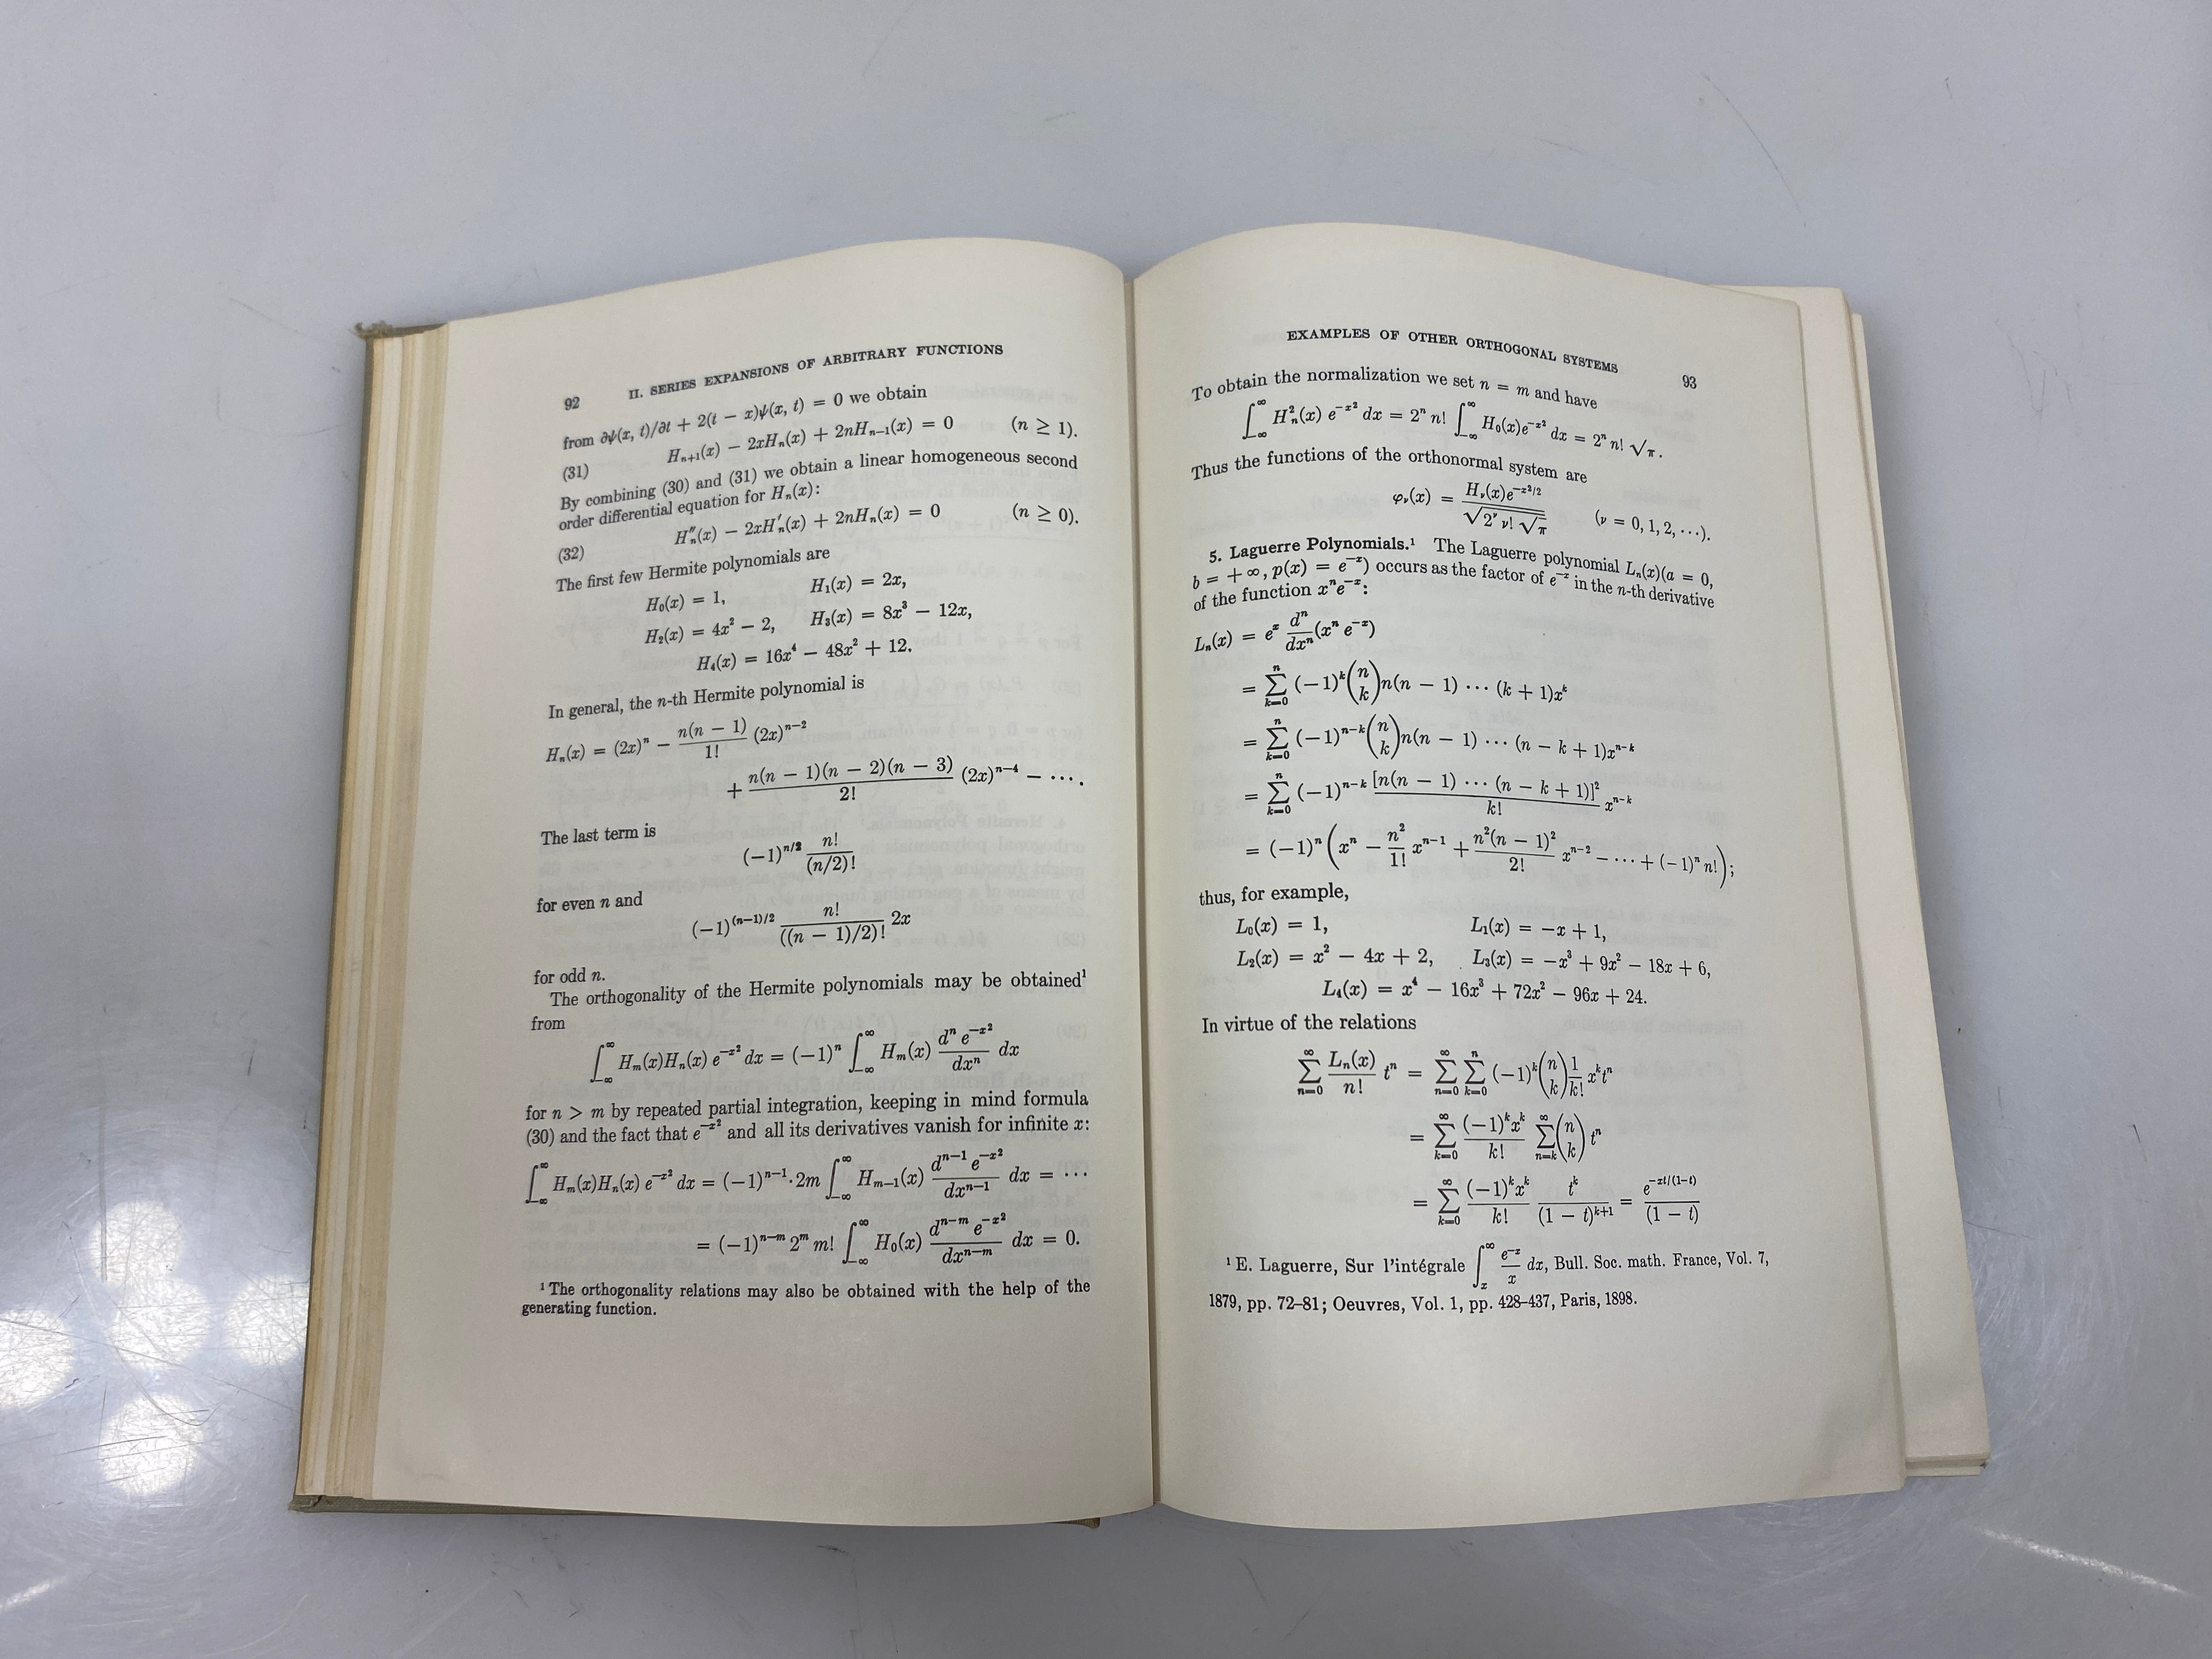 92 II. SERIES EXPANSIONS OF ARBITRARY FUNCTIONS
from ∂ψ(x, t)/∂t + 2(t − x)ψ(x, t) = 0 we obtain
(31) Hₙ₊₁(x) − 2xHₙ(x) + 2nHₙ₋₁(x) = 0 (n ≥ 1).
By combining (30) and (31) we obtain a linear homogeneous second
order differential equation for Hₙ(x):
(32) H″ₙ(x) − 2xH′ₙ(x) + 2nHₙ(x) = 0 (n ≥ 0).
The first few Hermite polynomials are
H₀(x) = 1, H₁(x) = 2x,
H₂(x) = 4x² − 2, H₃(x) = 8x³ − 12x,
H₄(x) = 16x⁴ − 48x² + 12.
In general, the n-th Hermite polynomial is
Hₙ(x) = (2x)ⁿ − n(n − 1)/1! (2x)ⁿ⁻²
+ n(n − 1)(n − 2)(n − 3)/2! (2x)ⁿ⁻⁴ − ⋯.
The last term is
(−1)^{n/2} n!/(n/2)!
for even n and
(−1)^{(n−1)/2} n!/((n − 1)/2)! 2x
for odd n.
The orthogonality of the Hermite polynomials may be obtained¹
from
∫_{−∞}^{∞} Hₘ(x)Hₙ(x) e^{−x²} dx = (−1)ⁿ ∫_{−∞}^{∞} Hₘ(x) dⁿ e^{−x²}/dxⁿ dx
for n > m by repeated partial integration, keeping in mind formula
(30) and the fact that e^{−x²} and all its derivatives vanish for infinite x:
∫_{−∞}^{∞} Hₘ(x)Hₙ(x) e^{−x²} dx = (−1)ⁿ⁻¹·2m ∫_{−∞}^{∞} Hₘ₋₁(x) dⁿ⁻¹ e^{−x²}/dxⁿ⁻¹ dx = ⋯
= (−1)^{n−m} 2ᵐ m! ∫_{−∞}^{∞} H₀(x) d^{n−m} e^{−x²}/dx^{n−m} dx = 0.
¹ The orthogonality relations may also be obtained with the help of the
generating function.
EXAMPLES OF OTHER ORTHOGONAL SYSTEMS 93
To obtain the normalization we set n = m and have
∫_{−∞}^{∞} H²ₙ(x) e^{−x²} dx = 2ⁿ n! ∫_{−∞}^{∞} H₀(x)e^{−x²} dx = 2ⁿ n! √π.
Thus the functions of the orthonormal system are
φ_ν(x) = H_ν(x)e^{−x²/2}/√(2^ν ν! √π) (ν = 0, 1, 2, ⋯).
5. Laguerre Polynomials.¹ The Laguerre polynomial Lₙ(x)(a = 0,
b = +∞, p(x) = e^{−x}) occurs as the factor of e^{−x} in the n-th derivative
of the function xⁿe^{−x}:
Lₙ(x) = eˣ dⁿ/dxⁿ (xⁿ e^{−x})
= ∑_{k=0}^{n} (−1)ᵏ(n k)n(n − 1) ⋯ (k + 1)xᵏ
= ∑_{k=0}^{n} (−1)^{n−k}(n k)n(n − 1) ⋯ (n − k + 1)x^{n−k}
= ∑_{k=0}^{n} (−1)^{n−k} [n(n − 1) ⋯ (n − k + 1)]²/k! x^{n−k}
= (−1)ⁿ (xⁿ − n²/1! xⁿ⁻¹ + n²(n − 1)²/2! xⁿ⁻² − ⋯ + (−1)ⁿ n!);
thus, for example,
L₀(x) = 1, L₁(x) = −x + 1,
L₂(x) = x² − 4x + 2, L₃(x) = −x³ + 9x² − 18x + 6,
L₄(x) = x⁴ − 16x³ + 72x² − 96x + 24.
In virtue of the relations
∑_{n=0}^{∞} Lₙ(x)/n! tⁿ = ∑_{n=0}^{∞} ∑_{k=0}^{n} (−1)ᵏ(n k)1/k! xᵏtⁿ
= ∑_{k=0}^{∞} (−1)ᵏxᵏ/k! ∑_{n=k}^{∞}(n k) tⁿ
= ∑_{k=0}^{∞} (−1)ᵏxᵏ/k! tᵏ/(1 − t)^{k+1} = e^{−xt/(1−t)}/(1 − t)
¹ E. Laguerre, Sur l'intégrale ∫_{x}^{∞} e^{−x}/x dx, Bull. Soc. math. France, Vol. 7,
1879, pp. 72–81; Oeuvres, Vol. 1, pp. 428–437, Paris, 1898.